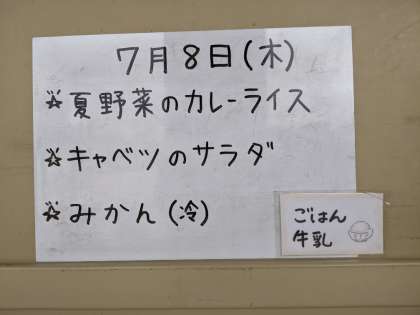 7月8日(木)
☆夏野菜のカレーライス
☆キャベツのサラダ
☆みかん(冷)
ごはん
牛乳